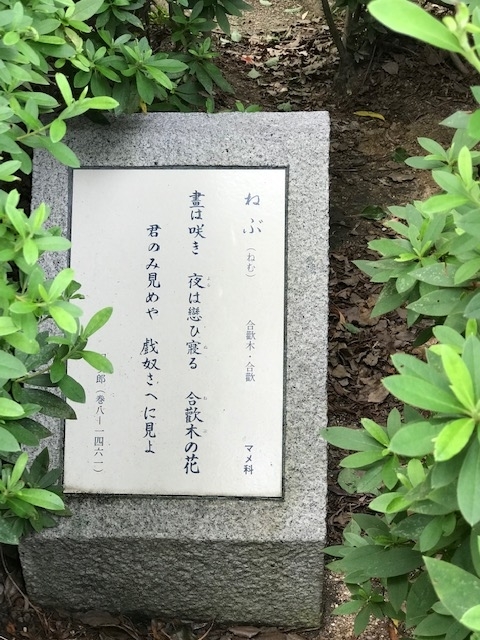 ねぶ（ねむ）　合歡木・合歡　マメ科
晝は咲き　夜は戀ひ寢る　合歡木の花
君のみ見めや　戯奴さへに見よ
郎（巻八－一四六一）